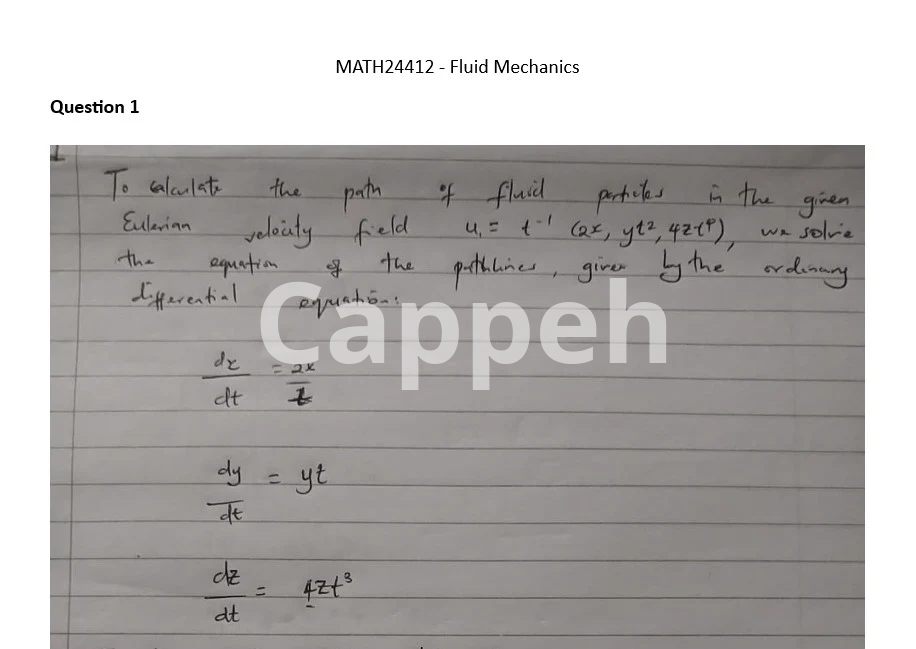 MATH24412 - Fluid Mechanics
Question 1
1
To calculate the path of fluid particles in the given
Eulerian velocity field u, = t⁻¹ (2x, yt², 4zt⁴), we solve
the equation of the pathlines, given by the ordinary
differential equation:
Cappeh
dx/dt = 2x/t
dy/dt = yt
dz/dt = 4zt³